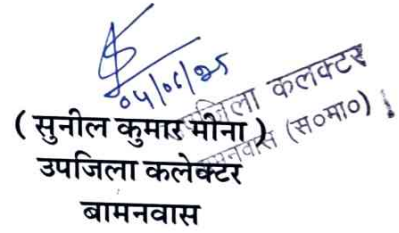 04/06/25
उपजिला कलक्टर
बामनवास (स०मा०)
( सुनील कुमार मीना )
उपजिला कलेक्टर
बामनवास